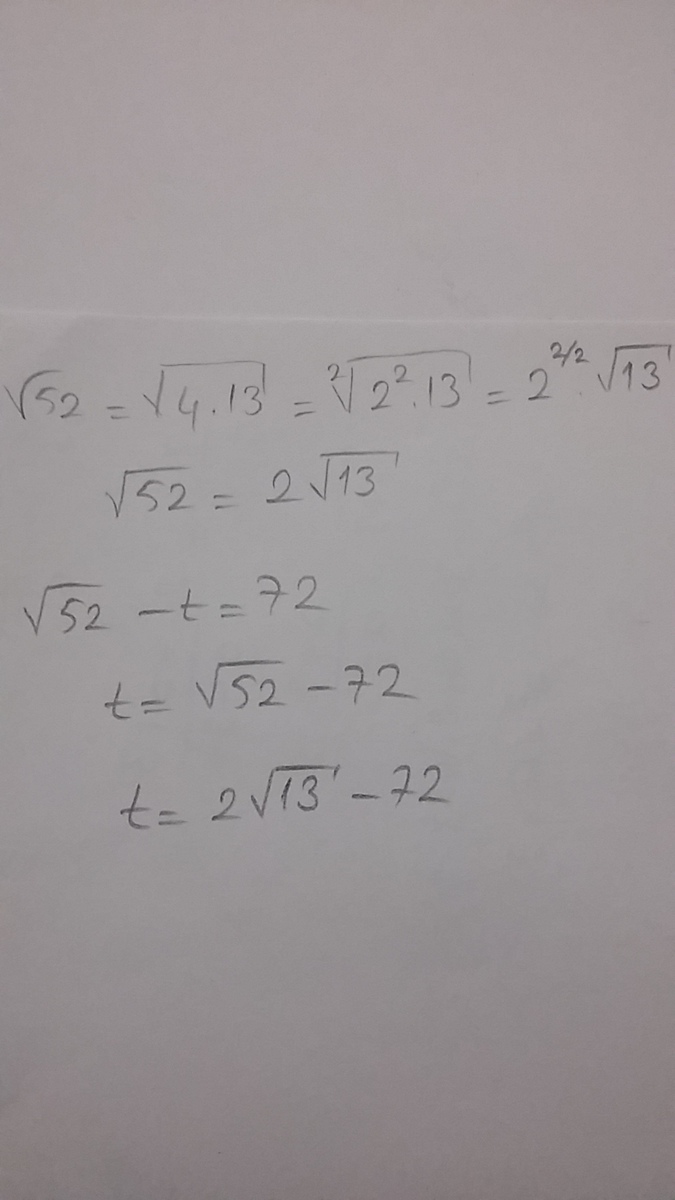 √52 = √4.13 = ²√2².13 = 2^2/2.√13
√52 = 2√13
√52 - t = 72
t = √52 - 72
t = 2√13 - 72